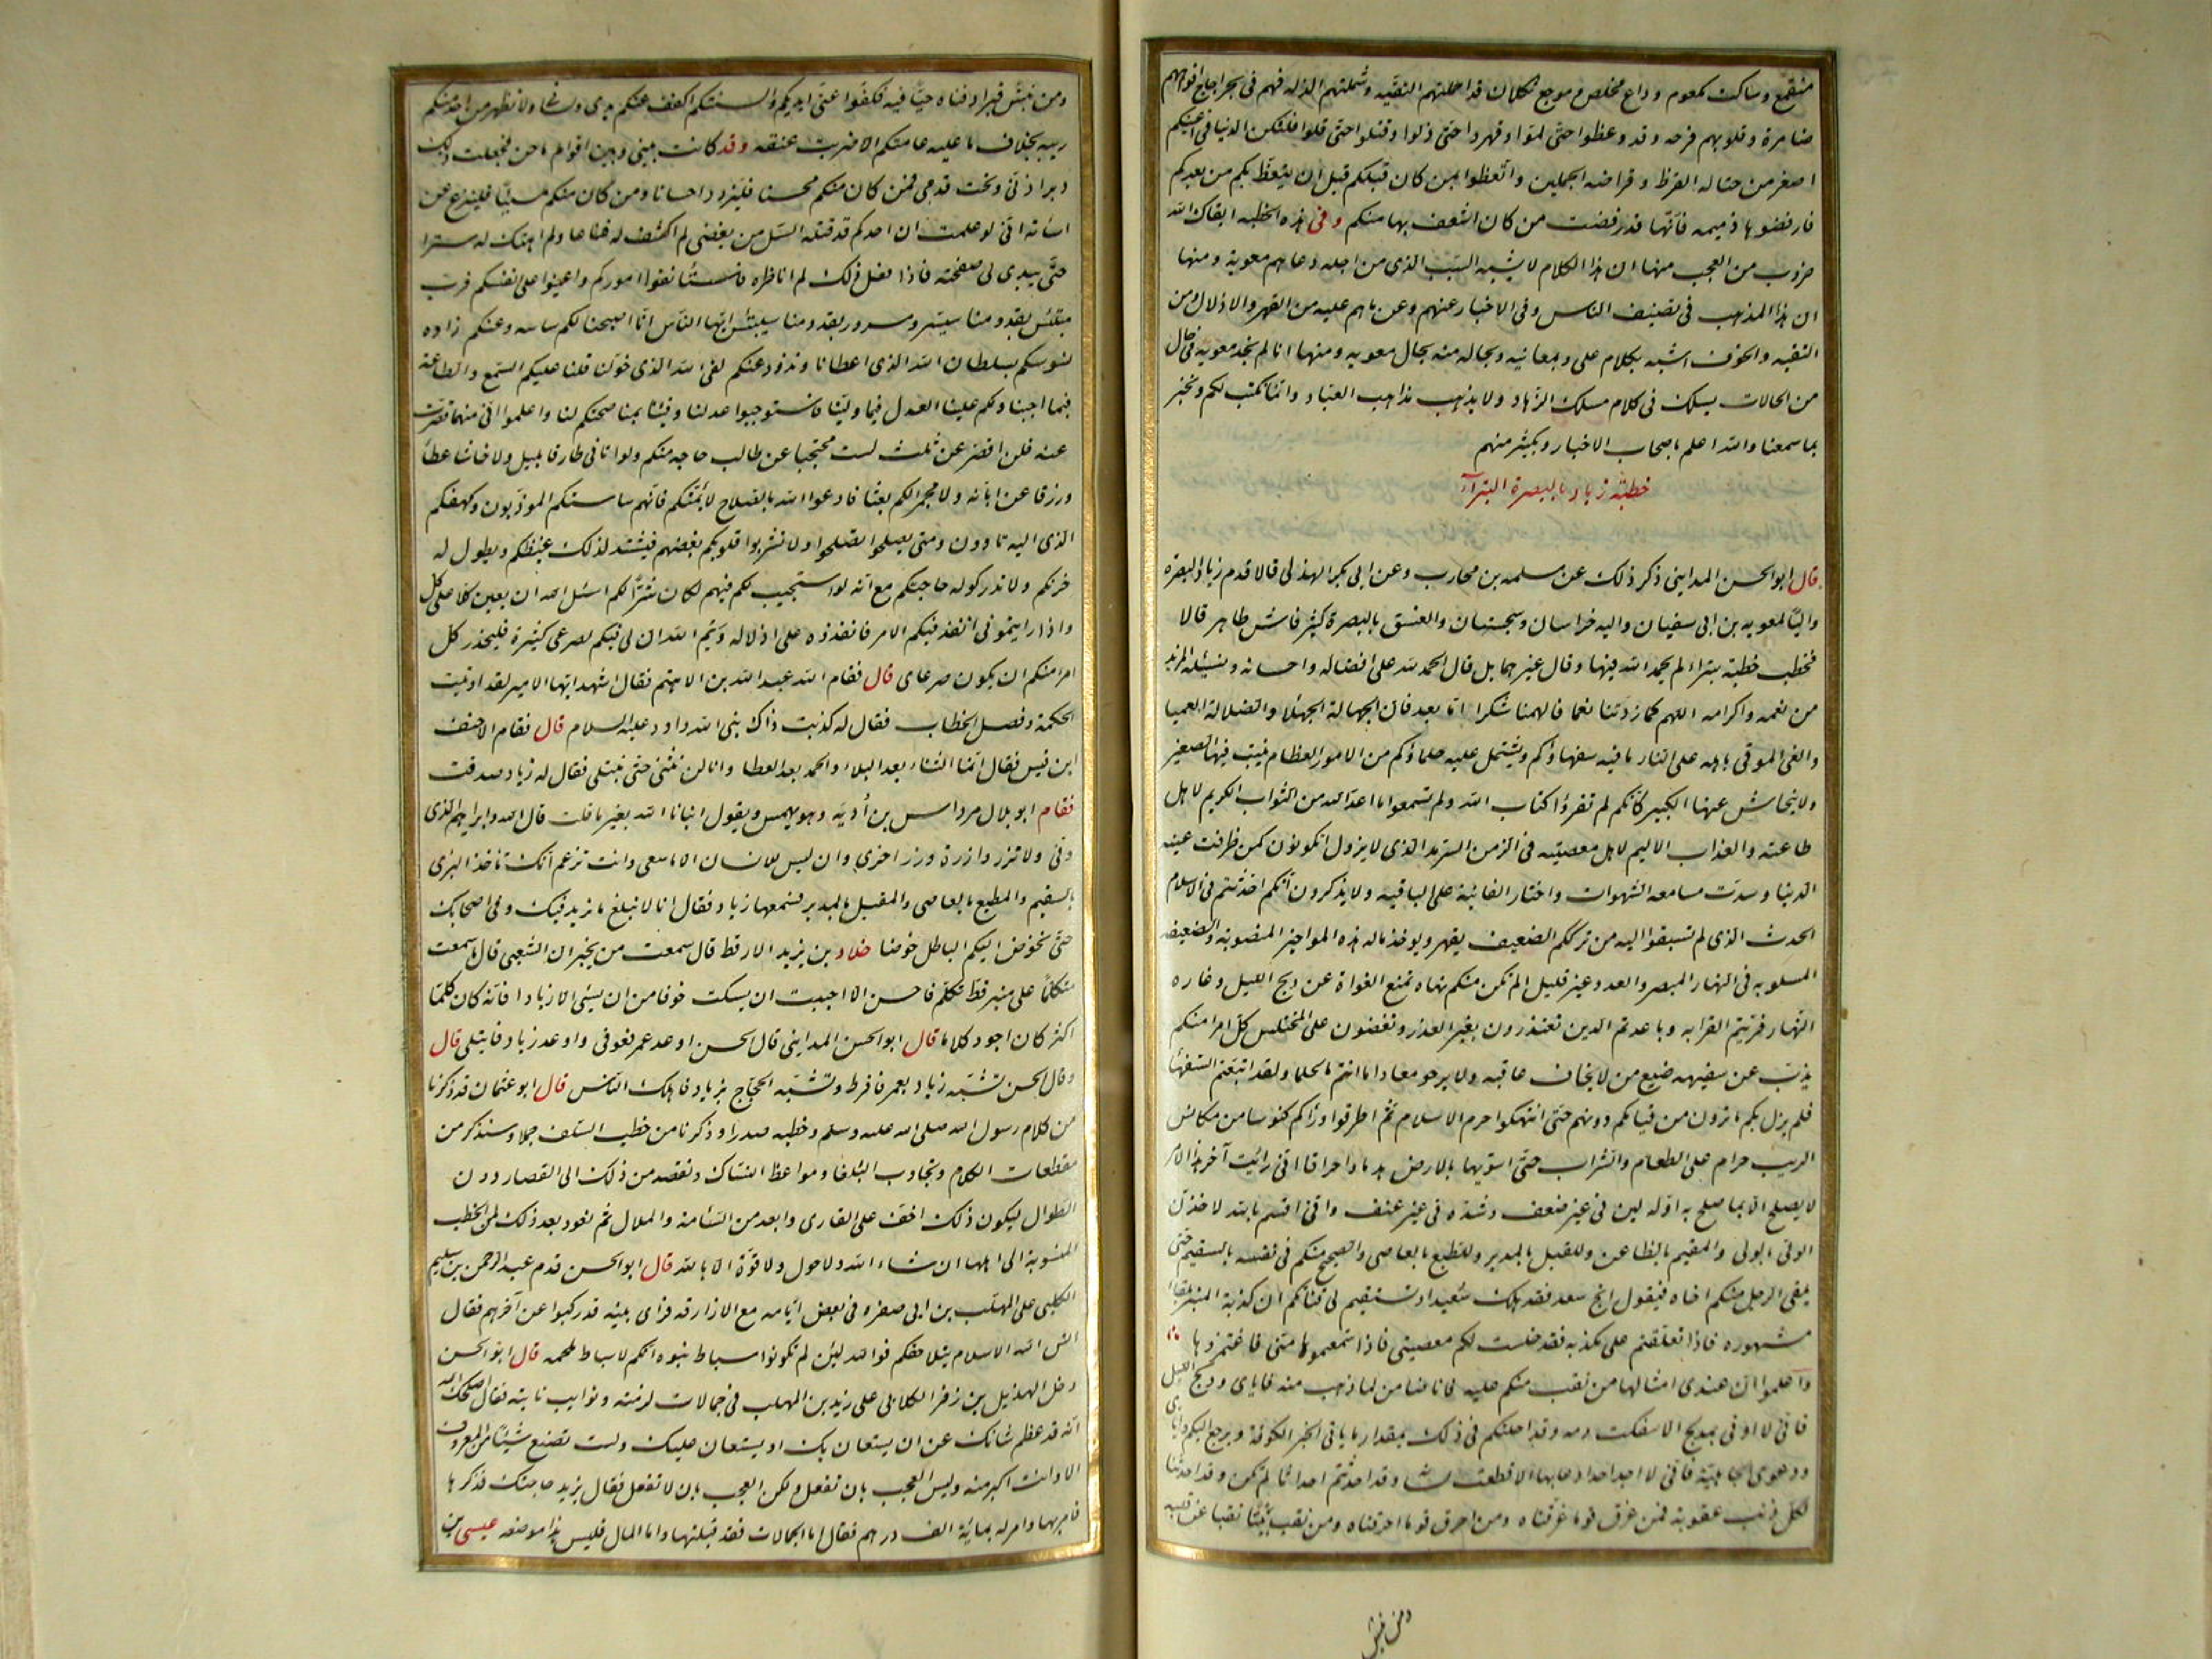 منقمع وساكت مكعوم وداع مخلص وموجع ثكلان قد اخملتهم التقيّه وشملتهم الذله فهم فى بحر اجاج افواههم
ضامرة وقلوبهم قرحه وقد وعظوا حتّى ملّوا وقهروا حتى ذلوا وقتلوا حتى قلوا فلتكن الدنيا فى اعينكم
اصغر من حثاله القرظ وقراضه الجلمين واتّعظوا بمن كان قبلكم قبل ان يتعظ بكم من بعدكم
فارفضوها ذميمه فانّها قد رفضت من كان اشغف بها منكم وفى هذه الخطبه ابقاك الله
ضروب من العجب منها ان هذا الكلام لا يشبه السّبب الذى من اجله دعاهم معوية ومنها
ان هذا المذهب فى تصنيف الناس وفى الاخبار عنهم وعن ما هم عليه من القهر والاذلال ومن
التقيه والخوف اشبه بكلام على وبمعانيه وبحاله منه بحال معويه ومنها انا لم نجد معويه فى حال
من الحالات يسلك فى كلام مسلك الزهاد ولا يذهب مذاهب العباد وانما نكتب لكم ونخبر
بما سمعنا والله اعلم باصحاب الاخبار وبكثير منهم
خطبة زياد بالبصرة البترآء
قال ابو الحسن المداينى ذكر ذلك عن مسلمه بن محارب وعن ابى بكر الهذلى قالا قدم زياد البصره
واليًا لمعويه بن ابى سفيان واليه خراسان وسجستان والفسق بالبصرة كثير فاش ظاهر قالا
فخطب خطبة بتراء لم يحمد الله فيها وقال غيرهما بل قال الحمد لله على افضاله واحسانه ونسئله المزيد
من نعمه واكرامه اللهم كما زدتنا نعما فالهمنا شكرا امّا بعد فان الجهالة الجهلا والضلالة العميا
والغى الموفى باهله على النار ما فيه سفهاؤكم ويشتمل عليه حلماؤكم من الامور العظام ينبت فيها الصغير
ولا يتحاش عنها الكبير كأنكم لم تقرؤا كتاب الله ولم تسمعوا ما اعدّ الله من الثواب الكريم لاهل
طاعته والعذاب الاليم لاهل معصيته فى الزمن السّرمد الذى لا يزول اتكونون كمن طرفت عينه
الدنيا وسدّت مسامعه الشهوات واختار الفانية على الباقيه ولا يذكرون انّكم احدثتم فى الاسلام
الحدث الذى لم تسبقوا اليه من ترككم الضعيف يقهر ويوخذ ماله هذه المواخير المنصوبة والضعيفه
المسلوبه فى النهار المبصر والعدد غير قليل الم تكن منكم نهاه تمنع الغواة عن دلج الليل وغاره
النّهار قرّبتم القرابه وباعدتم الدين تعتذرون بغير العذر وتغضون على المختلس كلّ امرا منكم
يذبّ عن سفيهه صنيع من لا يخاف عاقبه ولا يرجو معادا ما انتم بالحلما ولقد اتبعتم السّفها
فلم يزل بكم ما ترون من قيامكم دونهم حتى انتهكوا حرم الاسلام ثمّ اطرقوا وراكم كنوسا من مكانس
الريب حرام على الطعام والشراب حتى اسوّيها بالارض هدما واحراقا انّى رايت آخر هذا الامر
لا يصلح الّا بما صلح به اوّله لين فى غير ضعف وشدّه فى غير عنف وانى اقسم بالله لاخذن
الولىّ بالولى والمقيم بالظاعن والمقبل بالمدبر والمطيع بالعاصى والصحيح منكم فى نفسه بالسقيم حتى
يلقى الرجل منكم اخاه فيقول انج سعد فقد هلك سُعيد او تستقيم لى قناتكم ان كذبة المنبر بلقا
مشهوره فاذا تعلقتم على بكذبه فقد حلت لكم معصيتى فاذا سمعتموها منى فاغتمزوها
واعلموا ان عندى امثالها من نقب منكم عليه فانا ضامن لما ذهب منه فاياى ودلج الليل
فانى لا اوتى بمدلج الا سفكت دمه وقد اجلتكم فى ذلك بمقدار ما ياتى الخبر الكوفة ويرجع اليكم واياى
ودعوى الجاهلية فانى لا اجد احدا دعا بها الا قطعت لسانه وقد احدثتم احداثا لم تكن وقد احدثنا
لكل ذنب عقوبة فمن غرق قوما غرقناه ومن احرق قوما احرقناه ومن نقب بيتًا نقبنا عن قلبه
ومن نبش
ومن نبش قبرا دفناه حيّا فيه فكفّوا عنّى ايديكم والسنتكم اكفف عنكم يدى ولسانى ولا تظهر من احد منكم
ريبه بخلاف ما عليه عامتكم الا ضربت عنقه وقد كانت بينى وبين اقوام احن فجعلت ذلك
دبر اذنى وتحت قدمى فمن كان منكم محسنا فليزدد احسانا ومن كان منكم مسيئا فلينزع عن
اسائه انّى لو علمت ان احدكم قد قتله السّل من بغضى لم اكشف له قناعا ولم اهتك له سترا
حتّى يبدى لى صفحته فاذا فعل ذلك لم اناظره فاستأنفوا اموركم واعينوا على انفسكم فربّ
مبتئس بقدومنا سيسر ومسرور بقدومنا سيبتئس ايّها النّاس انّا اصبحنا لكم ساسه وعنكم زاده
نسوسكم بسلطان الله الذى اعطانا ونذود عنكم بفئ الله الذى خوّلنا فلنا عليكم السّمع والطاعة
فيما احببنا ولكم علينا العدل فيما ولينا فاستوجبوا عدلنا وفيئنا بمناصحتكم لنا واعلموا انّى مهما قصّرت
عنه فلن اقصر عن ثلث لست محتجبا عن طالب حاجه منكم ولو اتانى طارقا بليل ولا حابسا عطاءً
ورزقا عن ابّانه ولا مجمرا لكم بعثا فادعوا الله بالصلاح لائمّتكم فانهم ساستكم المودّبون وكهفكم
الذى اليه تاوون ومتى يصلحوا تصلحوا ولا تشربوا قلوبكم بغضهم فيشتد لذلك غيظكم ويطول له
حزنكم ولا تدركوا له حاجتكم مع انّه لو استجيب لكم فيهم لكان شرّا لكم اسئل الله ان يعين كلا على كل
واذا رايتمونى انفذ فيكم الامر فانفذوه على اذلاله وايم الله ان لى فيكم لصرعى كثيرة فليحذر كل
امرا منكم ان يكون صرعاى قال فقام الله عبد الله بن الاهتم فقال اشهد ايها الامير لقد اوتيت
الحكمة وفصل الخطاب فقال له كذبت ذاك نبى الله داود عليه السلام قال فقام الاحنف
ابن قيس فقال انّما الثناء بعد البلاء والحمد بعد العطا وانا لن نثنى حتى نبتلى فقال له زياد صدقت
فقام ابو بلال مرداس بن أُديّه وهو يهمس ويقول انبانا الله بغير ما قلت قال الله وابراهيم الذى
وفى ولا تزر وازرة وزر اخرى وان ليس للانسان الا ما سعى وانت تزعم انّك تاخذ البرى
بالسقيم والمطيع بالعاصى والمقبل بالمدبر فسمعها زياد فقال انا لا نبلغ ما نريد فيك وفى اصحابك
حتّى نخوض اليكم الباطل خوضا خلاد بن يزيد الارقط قال سمعت من يخبر ان الشعبى قال ما سمعت
متكلّما على منبر قطّ تكلّم فاحسن الا احببت ان يسكت خوفا من ان يسئ الا زيادا فانّه كان كلّما
اكثر كان اجود كلاما قال ابو الحسن المداينى قال الحسن اوعد عمر فعوفى واوعد زياد فابتلى قال
وقال الحسن تشبّه زياد بعمر فافرط وتشبّه الحجّاج بزياد فاهلك النّاس قال ابو عثمان قد ذكرنا
من كلام رسول الله صلى الله عليه وسلم وخطبه صدرا وذكرنا من خطب السّلف جملا وسنذكر من
مقطعات الكلام وتجاوب البُلغا ومواعظ النسّاك ونقصد من ذلك الى القصار دون
الطوال ليكون ذلك اخفّ على القارى وابعد من السّامة والملال ثمّ نعود بعد ذلك لمن الخطب
المنسوبة الى اهلها ان شاء الله ولا حول ولا قوّة الا بالله قال ابو الحسن قدم عبد الرحمن بن سليم
الكلبى على المهلّب بن ابى صفره فى بعض ايّامه مع الازارقه فراى بنيه قد ركبوا عن آخرهم فقال
آنس الله الاسلام بتلاحقكم فوالله لئن لم تكونوا اسباط نبوه انكم لاسباط ملحمه قال ابو الحسن
دخل الهذيل بن زفر الكلابى على يزيد بن المهلب فى حمالات لزمته ونوايب نابته فقال اصلحك الله
انّه قد عظم شانك عن ان يستعان بك او يستعان عليك ولست تصنع شيئا من المعروف
الا وانت اكبر منه وليس العجب بان تفعل ولكن العجب بان لا تفعل فقال يزيد حاجتك فذكرها
فامر بها وامر له بمائة الف درهم فقال اما الحمالات فقد قبلتها واما المال فليس هذا موضعه عيسى بن